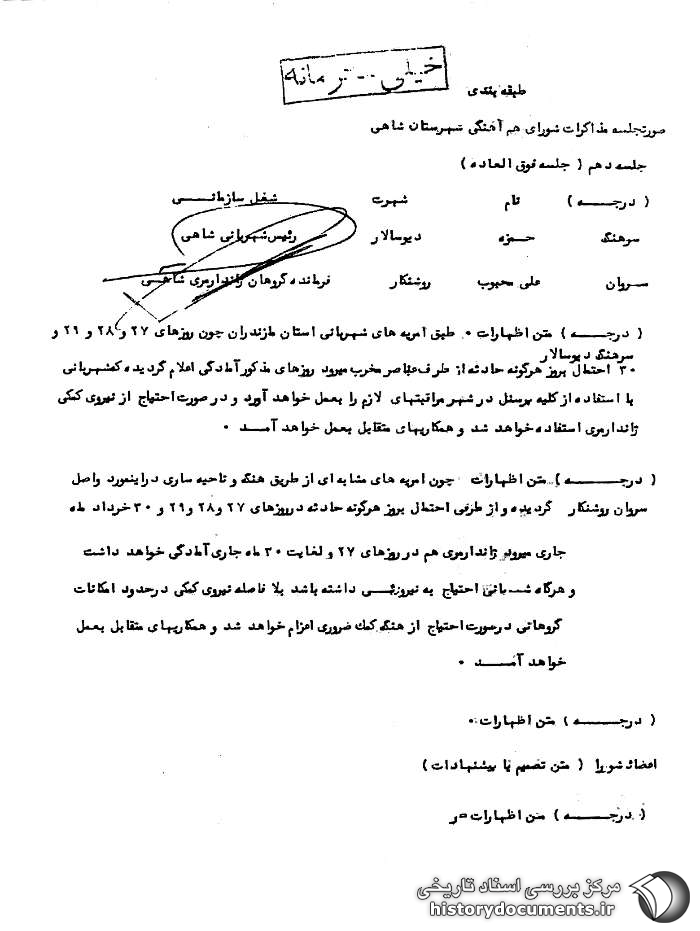 خیلی محرمانه
طبقه بندی
صورتجلسه مذاکرات شورای هم آهنگی شهرستان شاهی
جلسه دهم ( جلسه فوق العاده )
( درجـــه ) نام شهرت شغل سازمانـــی
سرهنگ حمزه دیوسالار رئیس شهربانی شاهی
سروان علی محبوب روشنکار فرمانده گروهان ژاندارمری شاهی
( درجـــه ) متن اظهارات ٠ طبق امریه های شهربانی استان مازندران چون روزهای ۲۷ و ۲۸ و ۲۹ و
سرهنگ دیوسالار
۳۰ احتمال بروز هرگونه حادثه از طرف عناصر مخرب میرود روزهای مذکور آمادگی اعلام گردیده که شهربانی
با استفاده از کلیه پرسنل در شهر مراقبتهای لازم را بعمل خواهد آورد و در صورت احتیاج از نیروی کمکی
ژاندارمری استفاده خواهد شد و همکاریهای متقابل بعمل خواهد آمــد ٠
( درجـــه ) متن اظهارات چون امریه های مشابه ای از طریق هنگ و ناحیه ساری در اینمورد واصل
سروان روشنکار گردیده و از طرفی احتمال بروز هرگونه حادثه در روزهای ۲۷ و ۲۸ و ۲۹ و ۳۰ خرداد ماه
جاری میرود ژاندارمری هم در روزهای ۲۷ و لغایت ۳۰ ماه جاری آمادگی خواهد داشت
و هرگاه شهربانی احتیاج به نیروئـــی داشته باشد بلا فاصله نیروی کمکی در حدود امکانات
گروهانی در صورت احتیاج از هنگ کمک ضروری اعزام خواهد شد و همکاریهای متقابل بعمل
خواهد آمـــد ٠
( درجـــه ) متن اظهارات ٠
اعضاء شورا ( متن تصمیم یا پیشنهادات )
( درجـــه ) متن اظهارات
مرکز بررسی اسناد تاریخی
historydocuments.ir